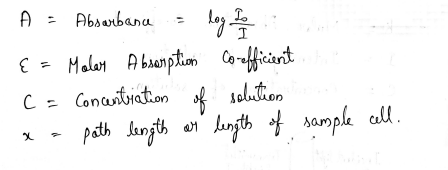 A = Absorbance = log I₀/I
ε = Molar Absorption Co-efficient
C = Concentration of solution
x = path length or length of sample cell.